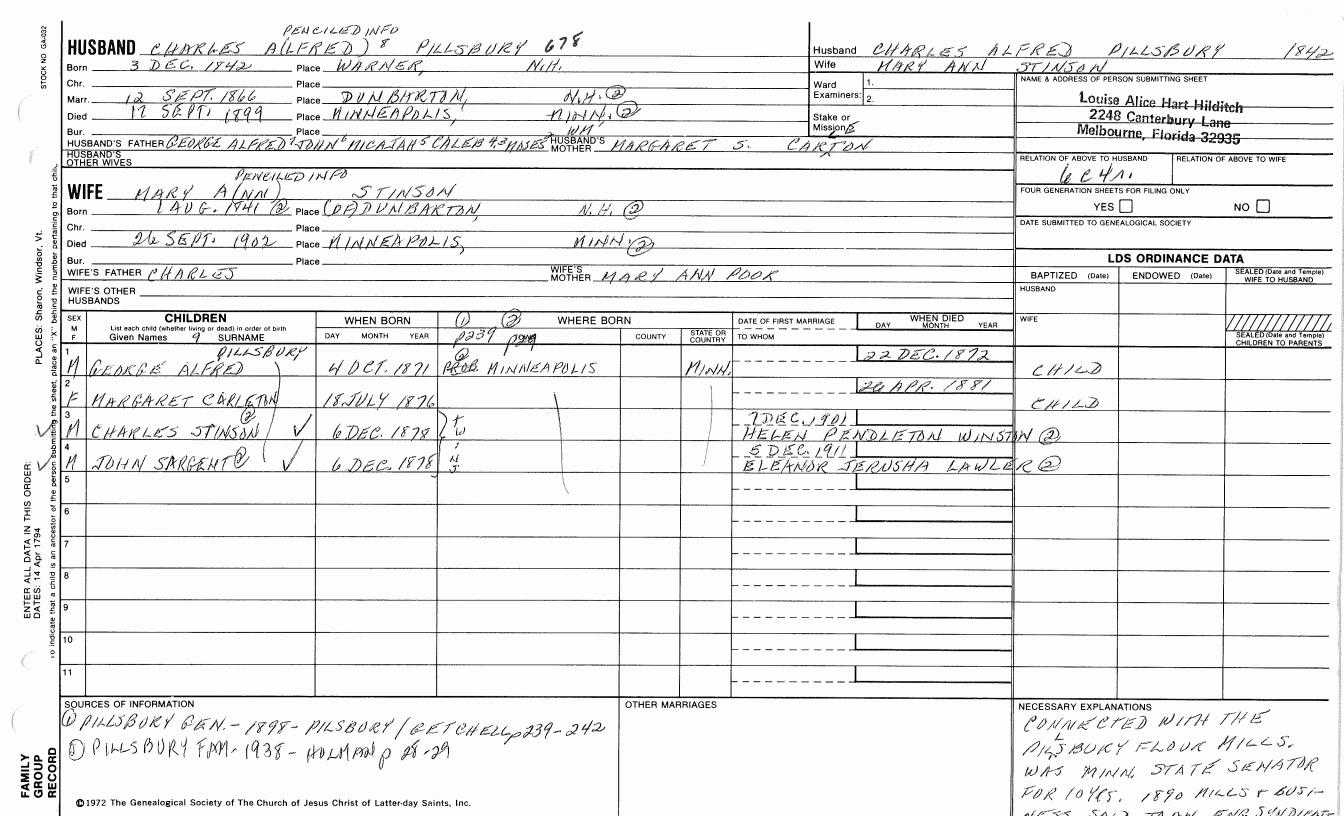 STOCK NO GA-032
PENCILED INFO
HUSBAND CHARLES A(LFRED) 8 PILLSBURY 678
Born 3 DEC. 1842 Place WARNER, N.H.
Chr. Place
Marr. 12 SEPT. 1866 Place DUNBARTON, N.H. ②
Died 17 SEPT. 1899 Place MINNEAPOLIS, MINN. ②
Bur. Place
HUSBAND'S FATHER GEORGE ALFRED 7 JOHN 6 MICAJAH 5 CALEB 4,3 MOSES 2 WM 1 HUSBAND'S MOTHER MARGARET S. CARLTON
HUSBAND'S OTHER WIVES
PENCILED INFO
WIFE MARY A(NN) STINSON
Born 1 AUG. 1941 ② Place (OF) DUNBARTON, N.H. ②
Chr. Place
Died 26 SEPT. 1902 Place MINNEAPOLIS, MINN ②
Bur. Place
WIFE'S FATHER CHARLES WIFE'S MOTHER MARY ANN POOR
WIFE'S OTHER HUSBANDS
Husband CHARLES ALFRED PILLSBURY 1842
Wife MARY ANN STINSON
Ward Examiners: 1. 2.
Stake or Mission
NAME & ADDRESS OF PERSON SUBMITTING SHEET
Louise Alice Hart Hilditch
2248 Canterbury Lane
Melbourne, Florida 32935
RELATION OF ABOVE TO HUSBAND RELATION OF ABOVE TO WIFE
6C4r.
FOUR GENERATION SHEETS FOR FILING ONLY
YES NO
DATE SUBMITTED TO GENEALOGICAL SOCIETY
LDS ORDINANCE DATA
BAPTIZED (Date) ENDOWED (Date) SEALED (Date and Temple) WIFE TO HUSBAND
HUSBAND
WIFE
SEALED (Date and Temple) CHILDREN TO PARENTS
SEX M F CHILDREN List each child (whether living or dead) in order of birth Given Names 9 SURNAME
WHEN BORN DAY MONTH YEAR
① ② WHERE BORN
p239 COUNTY STATE OR COUNTRY
DATE OF FIRST MARRIAGE TO WHOM
WHEN DIED DAY MONTH YEAR
PILLSBURY
1 M GEORGE ALFRED 4 OCT. 1871 ② PROB. MINNEAPOLIS MINN. 22 DEC. 1872 CHILD
2 F MARGARET CARLETON 18 JULY 1876 26 APR. 1881 CHILD
3 M CHARLES STINSON ② 6 DEC. 1878 TWINS 7 DEC. 1901 HELEN PENDLETON WINSTON ②
4 M JOHN SARGENT ② 6 DEC. 1878 5 DEC. 1911 ELEANOR JERUSHA LAWLER ②
5
6
7
8
9
10
11
SOURCES OF INFORMATION
① PILLSBURY GEN. - 1898 - PILSBURY/GETCHELL p239-242
② PILLSBURY FAM - 1938 - HOLMAN p 28-29
©1972 The Genealogical Society of The Church of Jesus Christ of Latter-day Saints, Inc.
OTHER MARRIAGES
NECESSARY EXPLANATIONS
CONNECTED WITH THE
PILLSBURY FLOUR MILLS.
WAS MINN. STATE SENATOR
FOR 10 YRS. 1890 MILLS & BUSI-
NESS SOLD TO AN ENG. SYNDICATE
PLACES: Sharon, Windsor, Vt.
ENTER ALL DATA IN THIS ORDER:
DATES: 14 Apr 1794
To indicate that a child is an ancestor of the person submitting the sheet, place an "X" behind the number pertaining to that chil
FAMILY GROUP RECORD